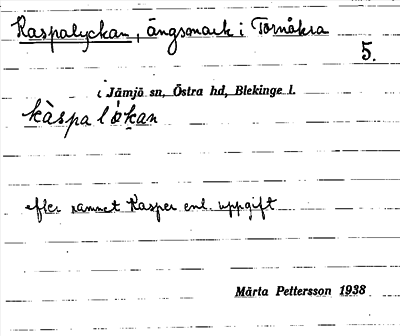 Kaspalyckan, ängsmark i Tornåkra
5.
i Jämjö sn, Östra hd, Blekinge l.
kàspalỳkan
efter namnet Kasper enl. uppgift
Märta Pettersson 1938